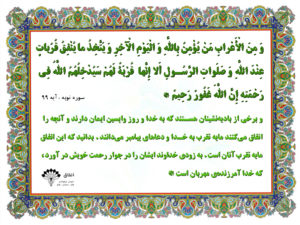 وَ مِنَ الْأَعْرَابِ مَنْ يُؤْمِنُ بِاللَّهِ وَ الْيَوْمِ الْآخِرِ وَ يَتَّخِذُ مَا يُنْفِقُ قُرُبَاتٍ
عِنْدَ اللَّهِ وَ صَلَوَاتِ الرَّسُولِ أَلَا إِنَّهَا قُرْبَةٌ لَهُمْ سَيُدْخِلُهُمُ اللَّهُ فِي
رَحْمَتِهِ إِنَّ اللَّهَ غَفُورٌ رَحِيمٌ
سوره توبه ، آیه ۹۹
و برخی از بادیه‌نشینان هستند که به خدا و روز واپسین ایمان دارند و آنچه را
انفاق می‌کنند مایه تقرب به خدا و دعاهای پیامبر می‌دانند . بدانید که این انفاق
مایه تقرب آنان است . به زودی خداوند ایشان را در جوار رحمت خویش در آورد ؛
که خدا آمرزنده‌ی مهربان است
انفاق